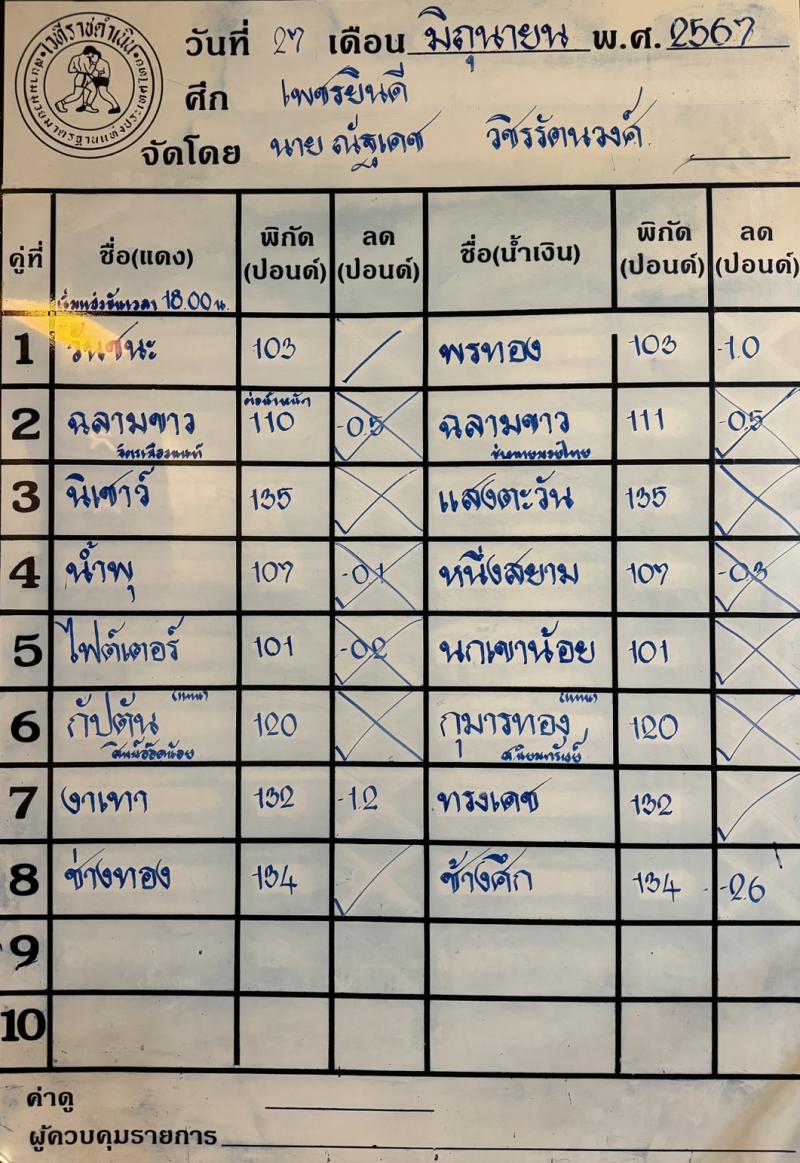 เวทีราชดำเนิน
สนามมวยมาตรฐานแห่งประเทศไทย
วันที่ 27 เดือน มิถุนายน พ.ศ. 2567
ศึก เพชรยินดี
จัดโดย นาย ณัฐเดช วชิรรัตนวงศ์
คู่ที่ ชื่อ(แดง) พิกัด (ปอนด์) ลด (ปอนด์) ชื่อ(น้ำเงิน) พิกัด (ปอนด์) ลด (ปอนด์)
เริ่มแข่งขันเวลา 18.00 น.
1 วันชนะ 103 พรทอง 103 -1.0
ต่อน้ำหนัก
2 ฉลามขาว 110 -0.5 ฉลามขาว 111 -0.5
3 นิเชาว์ 135 แสงตะวัน 135
4 น้ำพุ 107 -0.1 หนึ่งสยาม 107 -0.3
5 ไฟต์เตอร์ 101 -0.2 นกเขาน้อย 101
6 กัปตัน 120 กุมารทอง 120
7 งาเทา 132 -1.2 ทรงเดช 132
8 ช่างทอง 134 ช้างศึก 134 -2.6
9
10
ค่าดู
ผู้ควบคุมรายการ